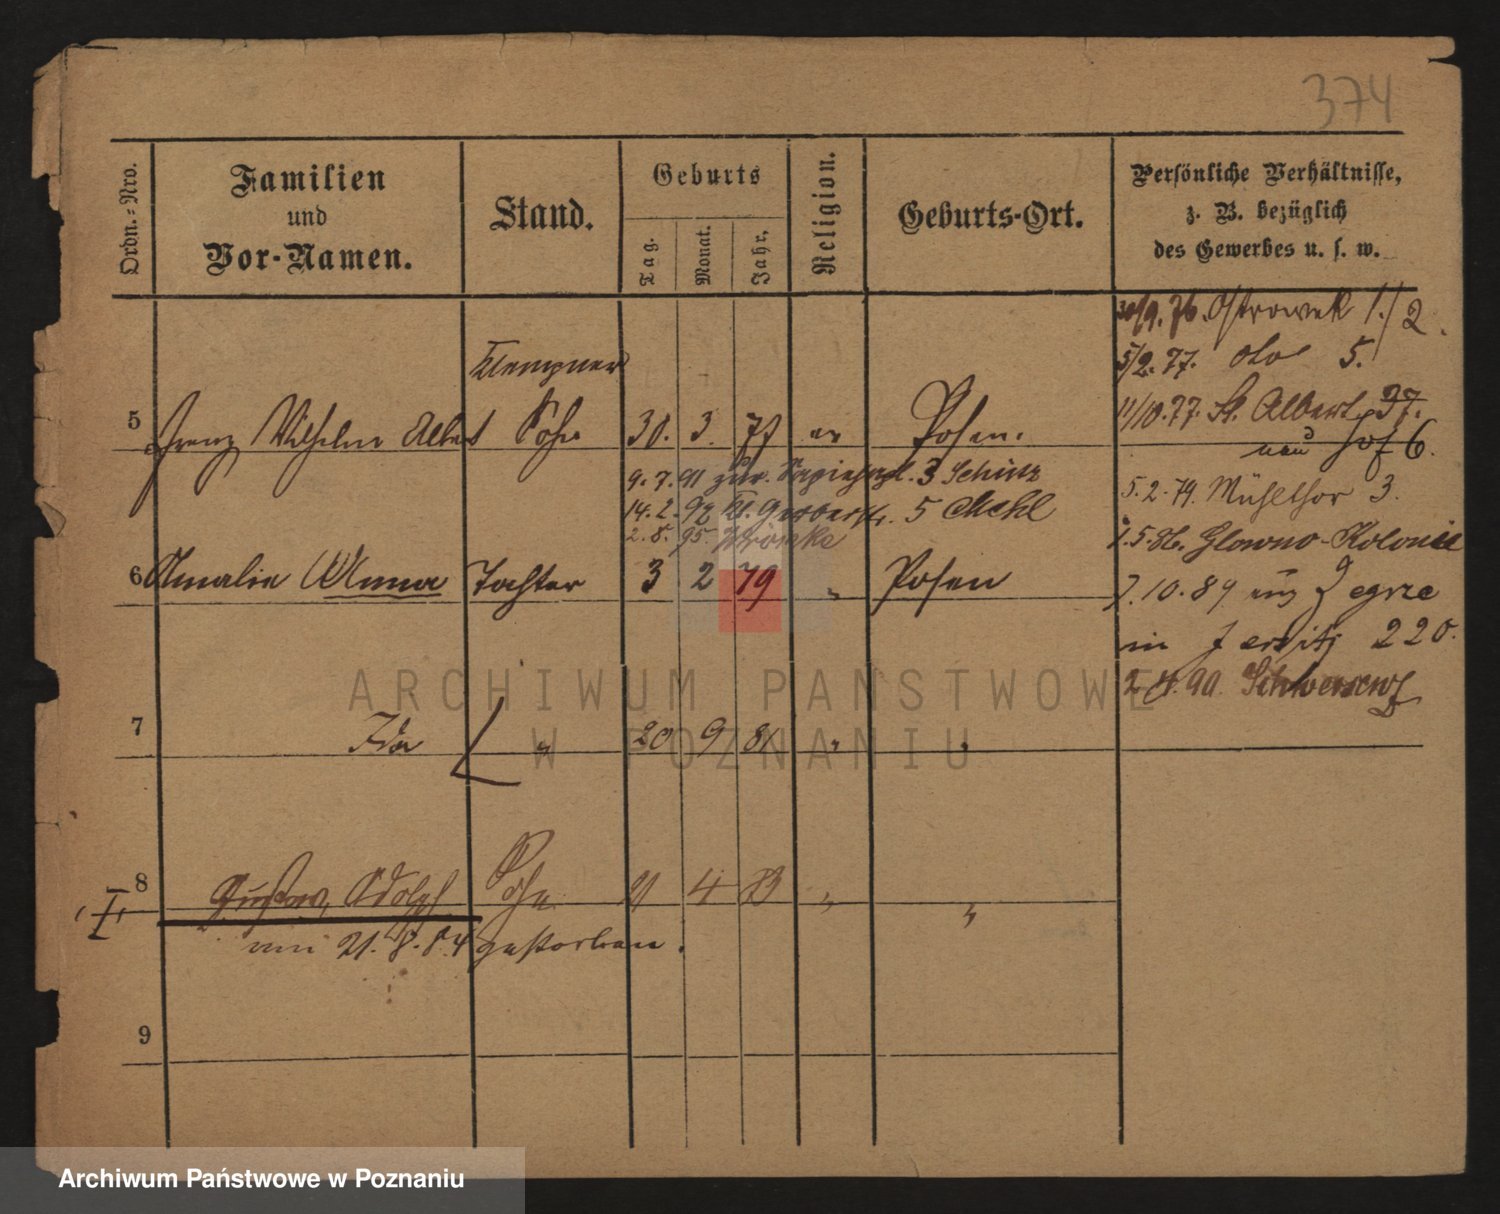 374
Ordn.-Nro.
Familien
und
Vor-Namen.
Stand.
Geburts
Tag.
Monat.
Jahr.
Religion.
Geburts-Ort.
Persönliche Verhältnisse,
z. B. bezüglich
des Gewerbes u. s. w.
30/9. 76. Ostrowek 1./2.
5/2. 77. oto 5.
Klempner
5 Franz Wilhelm Albert Sohn 30. 3. 77 ev Posen.
11/10. 77. St. Albert 37.
neu Hof 6.
9. 7. 91 zur. Sapiehapl. 3 Schütz
14. 2. 92 Kl. Gerberstr. 5 Mehl
2. 8. 95. Wronke
5. 2. 79. Mühlthor 3.
1. 5. 86. Glowno-Kolonie
6 Amalie Anna Tochter 3 2 79 " Posen
7. 10. 89 Zegrze
in Jersitz 220.
2. 4. 90. Schwersenz
7 Ida " 20 9 81 " "
8 Gustav Adolph Sohn 21 4 83 " "
I
am 21. 8. 84 gestorben.
9
ARCHIWUM PAŃSTWOWE
W POZNANIU
Archiwum Państwowe w Poznaniu